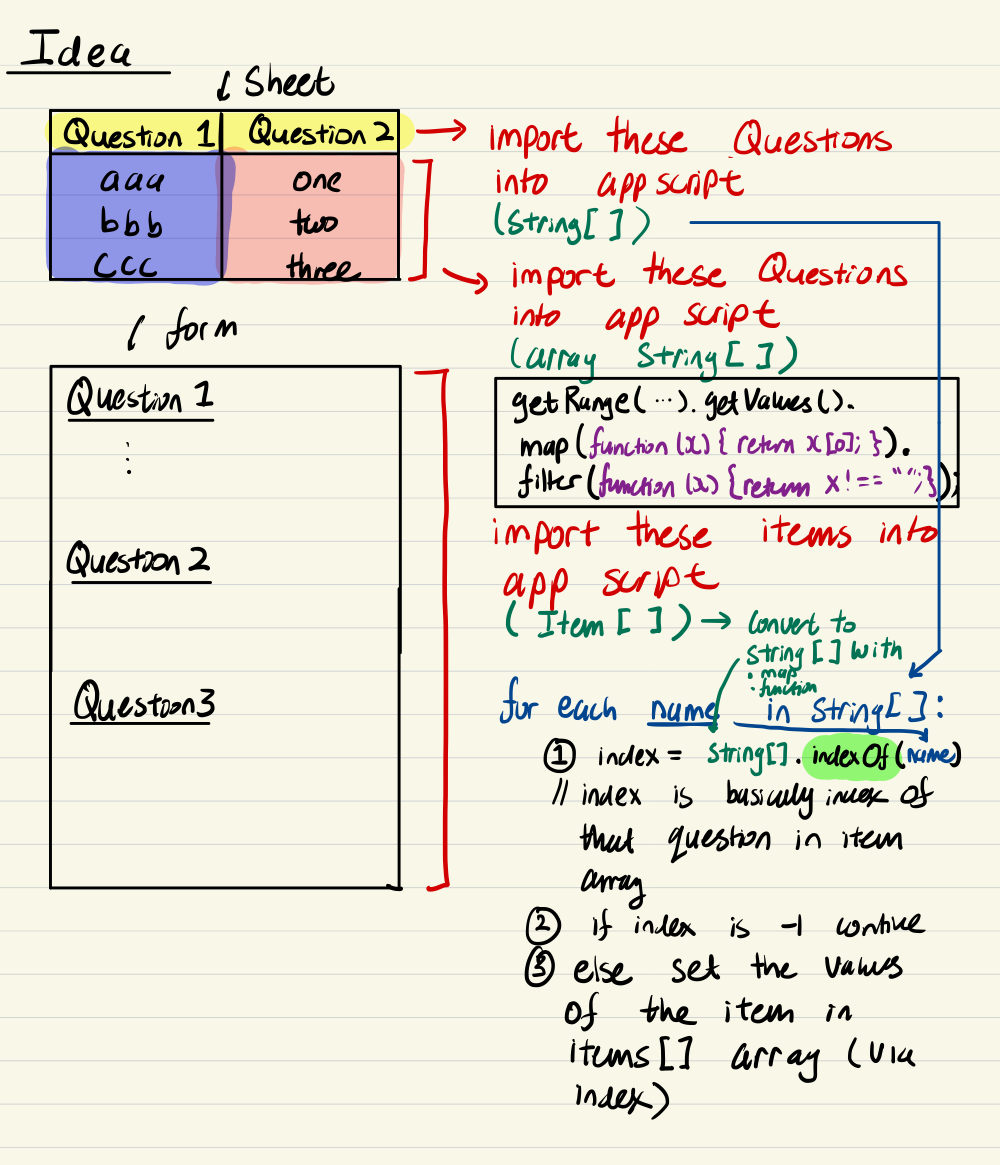 Idea
Sheet
Question 1 Question 2
aaa one
bbb two
ccc three
import these Questions
into app script
(String[ ])
import these Questions
into app script
(array String[ ])
form
Question 1
Question 2
Question 3
getRange( ...). getValues().
map(function (x) { return x[0]; }).
filter(function (x) {return x!== "";});
import these items into
app script
( Item [ ] ) → convert to
string [ ] with
. map
. function
for each name in String[ ]:
① index = String[]. indexOf(name)
// index is basically index of
that question in item
array
② if index is -1 contiue
③ else set the values
of the item in
items[] array (via
index)